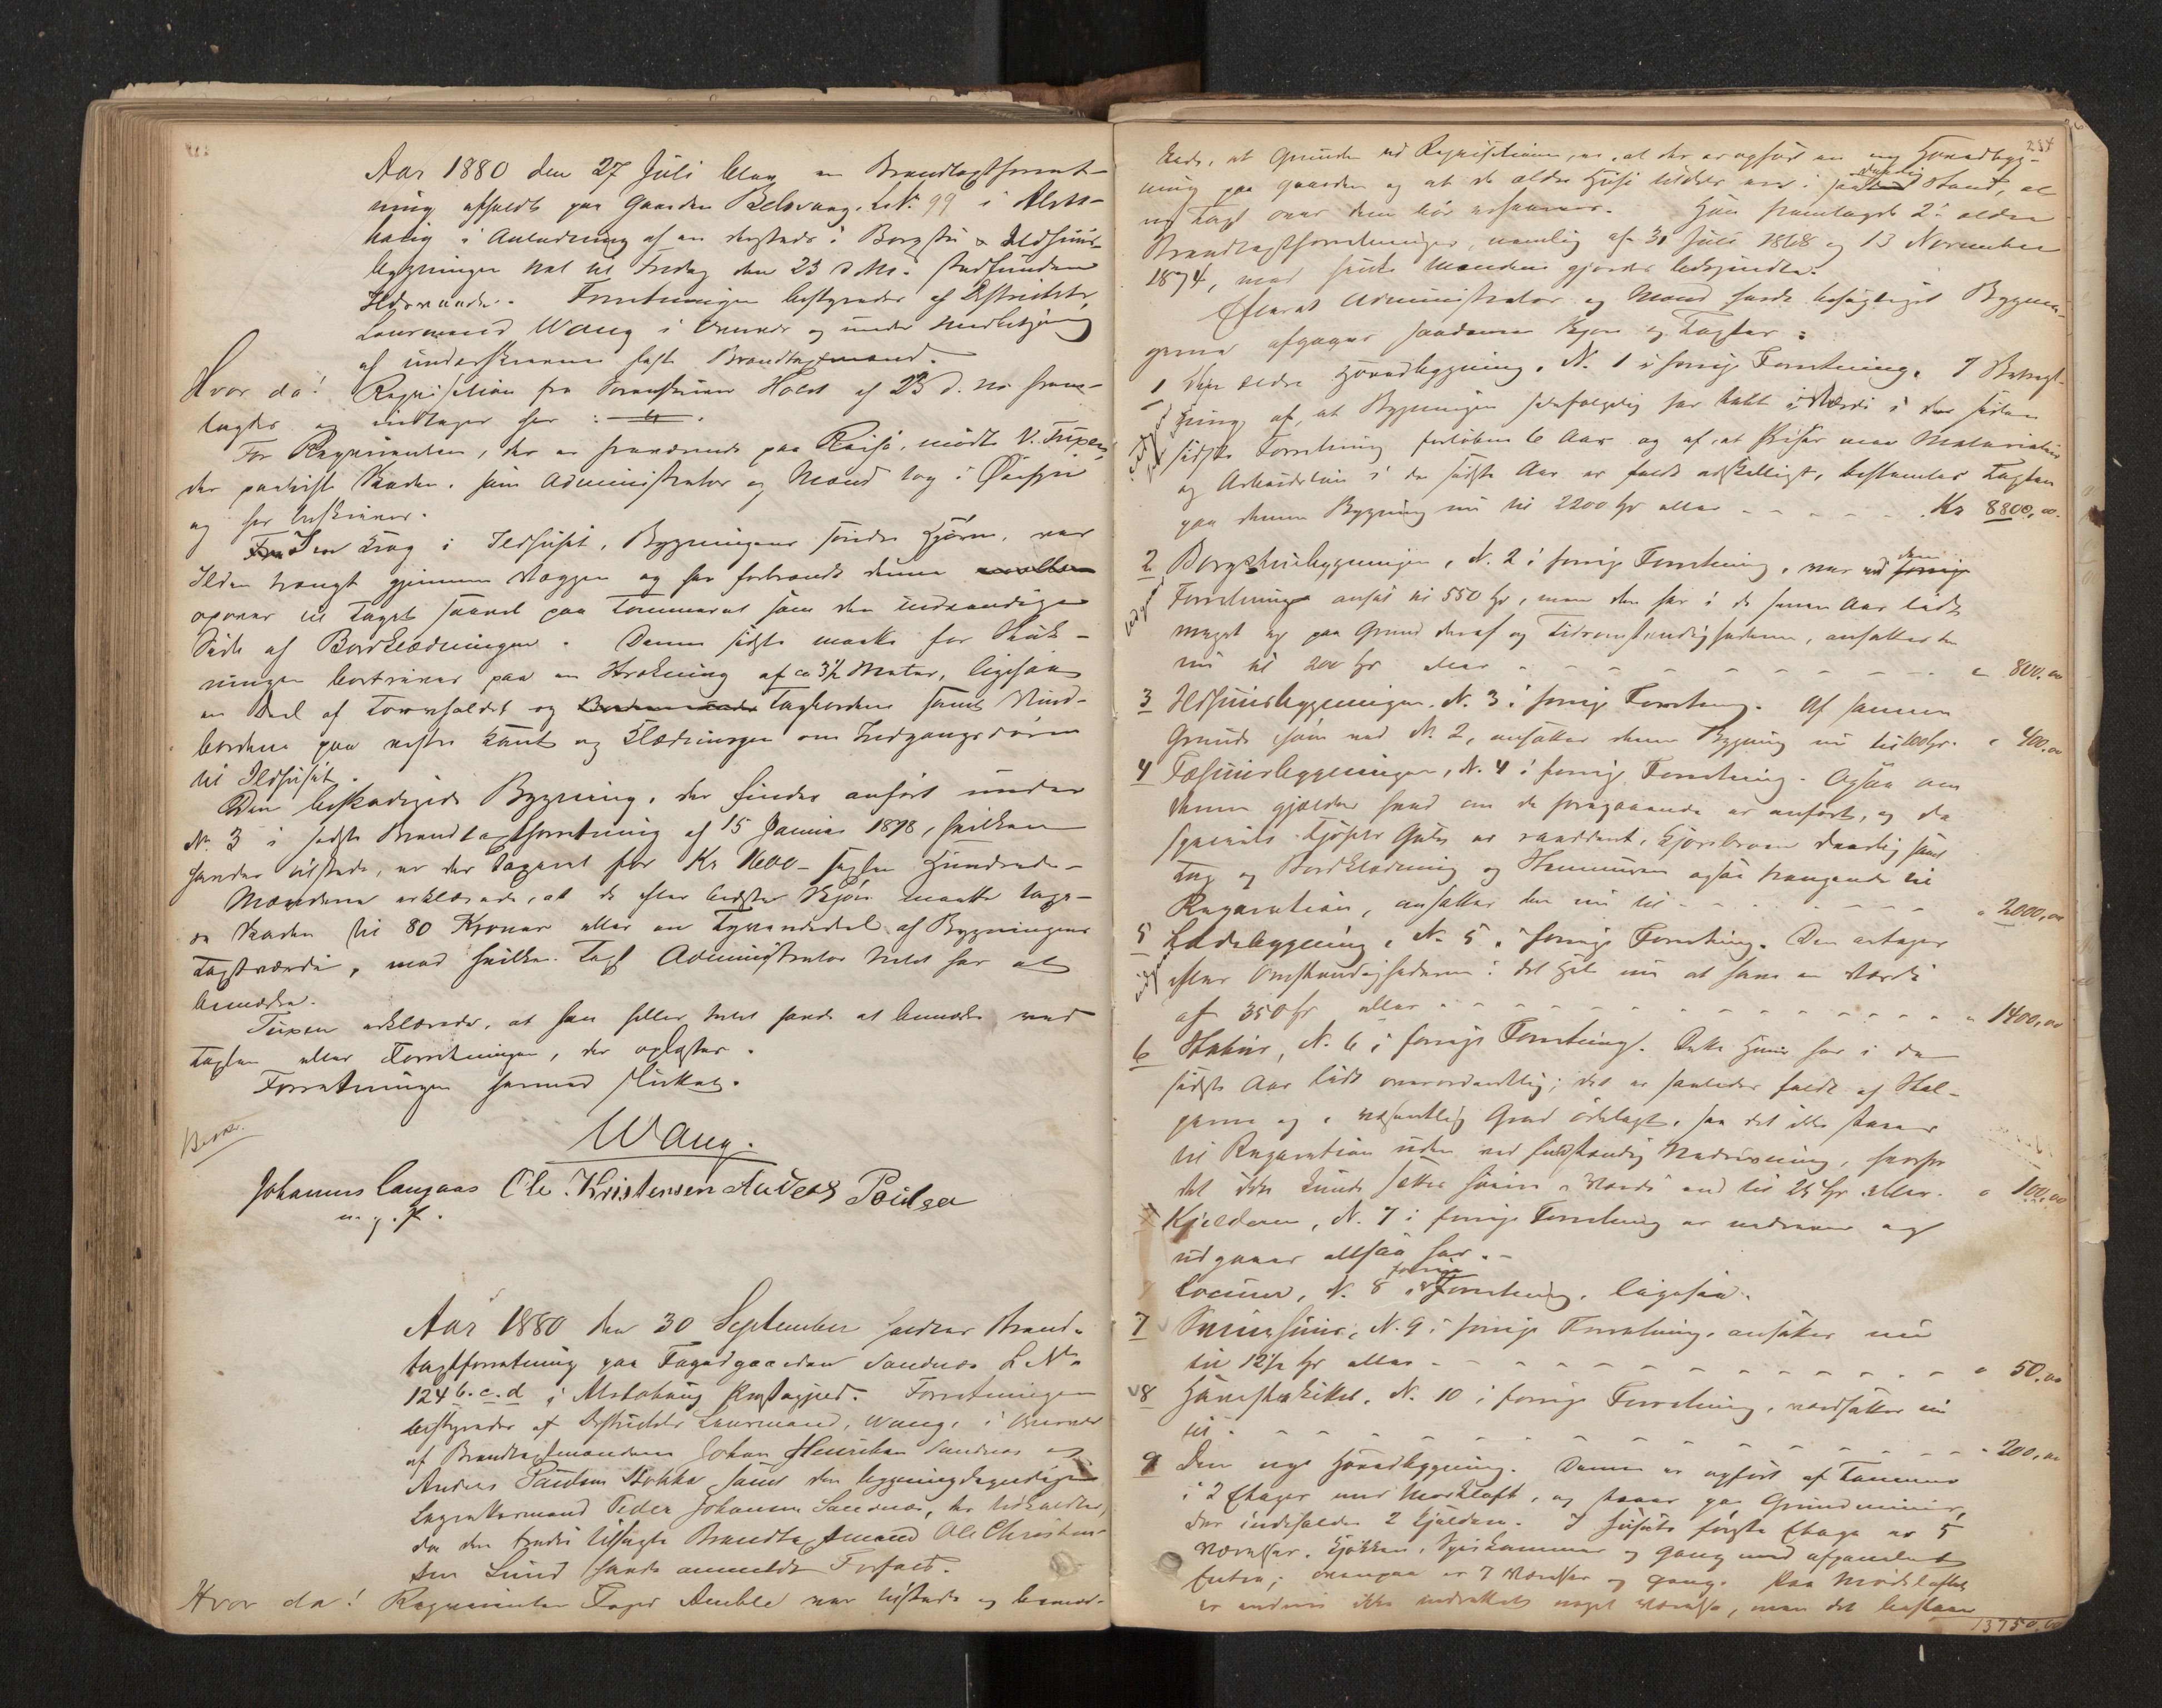 Aar 1880 den 27 Juli blev en Brandtaxtforret-
ning afholdt paa Gaarden Belsvaag, L.N. 99 i Alsta-
houg i Anledning af en dersteds i Borgstu & Ildhuus-
bygningen Nat til Fredag den 23 d. M. stedfunden
Ildsvaade. Forretningen bestyredes af Distrikts-
Lensmand Wang i Overvær og under Medbetjening
af underskrevne faste Brandtaxtmænd.
Hvor da! Reqvisition fra Holst af 23 d. M. frem-
lagdes og indtages her : — " — .
For Reqvirenten, der er fraværende paa Reise, mødte V. Tuxen,
der paaviste Skaden, som Administrator og Mænd tog i Øiesyn
og her beskrives.
I en Krog i Ildhuset, Bygningens søndre Hjørne, var
Ilden trængt gjennem Væggen og har forbrændt denne
opover til Taget saavel paa Tømmeret som den indvendige
Side af Bordklædningen. Denne sidste maatte for Sluk-
ningen bortrives paa en Strækning af ca 3½ Meter, ligesaa
en Deel af Torvholdet og Tagbordene samt Vind-
bordene paa vestre Kant og Klædningen om Indgangsdøren
til Ildhuset.
Den beskadigede Bygning, der findes anført under
No. 3 i sidste Brandtaxtforretning af 15 Januar 1878, hvilken
havdes tilstede, er der taxeret for Kr 1600 – sexten Hundrede –
Mændene erklærede, at de efter bedste Skjøn maatte taxe-
re Skaden til 80 Kroner eller en Tyvendedel af Bygningens
Taxtværdi, mod hvilken Taxt Administrator Intet har at
bemærke.
Tuxen erklærede, at han heller Intet havde at bemærke ved
Taxten eller Forretningen, der oplæstes.
Forretningen hermed sluttet.
Wang.
Johannes Langaas Ole Kristensen Anders Poulsen
m. p. P.
Aar 1880 den 30 September holdtes Brand-
taxtforretning paa Fogedgaarden Sandnes L. No.
124 b. c. d i Alstahoug Præstegjeld. Forretningen
bestyredes af Distrikts Lensmand, Wang, i Overvær
af Brandtaxtmændene Johan Henriksen Sandnes og
Anders Paulsen Stokka samt den bygningskyndige
Lagrettesmand Peder Johansen Sandnes, der tilkaldtes,
da den tredie tilsagte Brandtaxtmand Ole Christen-
sen Lund havde anmeldt Forfald.
Hvor da! Reqvirenten Foged Aeuble var tilstede og bemær-
234
kede, at Grunden til Reqvisitionen er, at der er opført en ny Hovedbyg-
ning paa Gaarden og at de ældre Huse tildels ere i daarlig Stand, at
ny Taxt over dem bør optages. Han fremlagde 2de ældre
Brandtaxtforretninger, nemlig af 31 Juli 1868 og 13 November
1874, med hvilke Mændene gjordes bekjendte.
Efterat Administrator og Mænd havde besigtiget Bygnin-
gerne afgaves saadanne Skjøn og Taxter:
1 Den ældre Hovedbygning, N. 1 i forrige Forretning. I Betragt-
ning af, at Bygningen selvfølgelig har tabt i Værdi i de siden
sidste Forretning forløbne 6 Aar og af, at Priser paa Materialier
og Arbeidsløn i de sidste Aar er faldt adskilligt, bestemtes Taxten
paa denne Bygning nu til 2200 Spd eller - - - - - - Kr 8800,00.
2 Borgstuebygningen, N. 2 i forrige Forretning, var ved den
Forretning ansat til 550 Spd, men den har i de senere Aar lidt
meget og paa Grund deraf og Tidsomstændighederne, ansættes den
nu til 200 Spd eller - - - - - - - - - - " 800,00
3 Ildhuusbygningen, N. 3 i forrige Forretning. Af samme
Grunde som ved N. 2, ansættes denne Bygning nu til 100 Spd. " 400,00
4 Fæhuusbygningen, N. 4 i forrige Forretning. Ogsaa om
denne gjælder hvad om de foregaaende er anført, og da
Tag og Bordklædning og ogsaa trængende til
Reparation, ansættes den nu til - - - - - - - " 2000,00
5 Ladebygning, N. 5 i forrige Forretning. Den antages
efter Omstændighederne i det Hele nu at have en Værdi
af 350 Spd eller - - - - - - - - - - - - " 1400,00
6 Stabur, N. 6 i forrige Forretning. Dette Huus har i de
sidste Aar lidt overordentlig; det er saaledes faldt af Stol-
perne og i væsentlig Grad ødelagt, saa det ikke staaer
til Reparation uden ved fuldstændig Nedrivning, hvorfor
det ikke kunde sættes høiere i Værdi end til 25 Spd eller. " 100,00
Kjelderen, N. 7 i forrige Forretning er nedreven og
udgaaer altsaa her. –
Locum, N. 8 i forrige Forretning, ligesaa.
7 N. 9 i forrige Forretning, ansættes nu
til 12½ Spd eller - - - - - - - - - - - - " 50,00
8 N. 10 i forrige Forretning, værdsættes nu
til - - - - - - - - - - - - - - " 200,00
9 Den nye Hovedbygning. Denne er opført af Tømmer
i 2 Etager med Mørkloft, og staaer paa Grundmuur,
der indeholder 2 Kjældere. I Husets første Etage er 5
Værelser, Kjøkken, Spiskammer og Gang med afpanelet
Entré; ovenpaa er 7 Værelser og Gang. Paa Mørkloftet
er endnu ikke indrettet noget Værelse, men det bestaar
13750,00